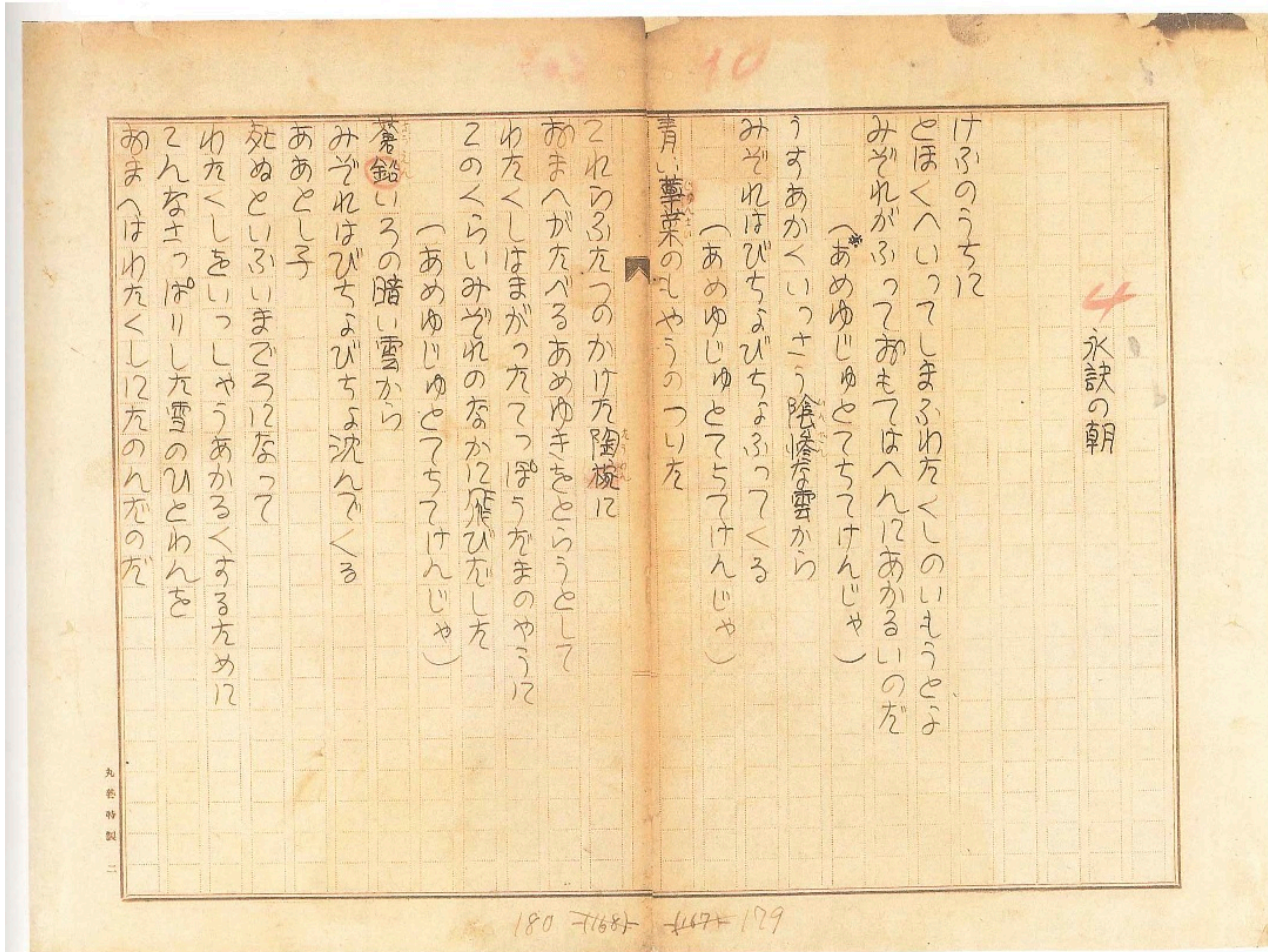 10
4
永訣の朝
けふのうちに
とほくへいってしまふわたくしのいもうとよ
みぞれがふっておもてはへんにあかるいのだ
(※あめゆじゅとてちてけんじゃ)
うすあかくいっさう陰惨な雲から
みぞれはびちょびちょふってくる
(あめゆじゅとてちてけんじゃ)
青い蓴菜のもやうのついた
これらふたつのかけた陶椀に
おまへがたべるあめゆきをとらうとして
わたくしはまがったてっぽうだまのやうに
このくらいみぞれのなかに飛びだした
(あめゆじゅとてちてけんじゃ)
蒼鉛いろの暗い雲から
みぞれはびちょびちょ沈んでくる
ああとし子
死ぬといふいまごろになって
わたくしをいっしゃうあかるくするために
こんなさっぱりした雪のひとわんを
おまへはわたくしにたのんだのだ
丸善特製 二
180
179